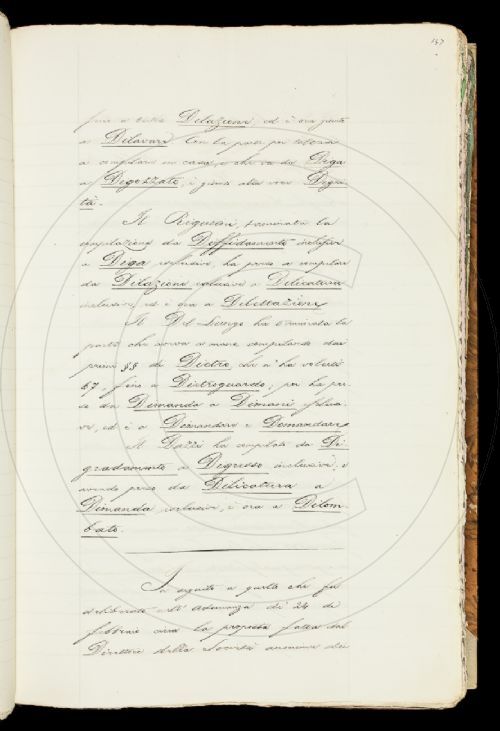 157
fino a tutto Delazione, ed è ora giunto
a Dilavare. Con la parte poi tolta
a compilare in casa, e che va da Dega
a Degozzato, è giunto alla voce Degni-
tà.
Il Rigutini, terminata la
compilazione da Deffidamento inclusive
a Dega esclusive, ha preso a compilare
da Dilazione esclusive a Delicatura
inclusive, ed è ora a Dilettazione
Il Del-Lungo ha terminata la
parte che aveva a mano compilando due
paragrafi §§ di Dietro che n'ha voluti
67, fino a Dietroguardo; poi ha pre-
so da Dimanda a Dimani esclusi-
ve, ed è a Dimandare e Domandare
Il Dazzi ha compilato da Di-
gradamento a Degresso inclusive, e
avendo preso da Delicatura a
Dimanda, esclusive, è ora a Dilom-
bato.
In seguito a quello che fu
deliberato nell'Adunanza de' 24 di
febbraio circa la proposta fatta dal
Direttore della Società anonima dei